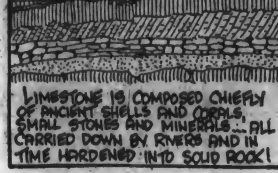 LIMESTONE IS COMPOSED CHIEFLY
OF ANCIENT SHELLS AND CORALS,
SMALL STONES AND MINERALS... ALL
CARRIED DOWN BY RIVERS AND IN
TIME HARDENED INTO SOLID ROCK!